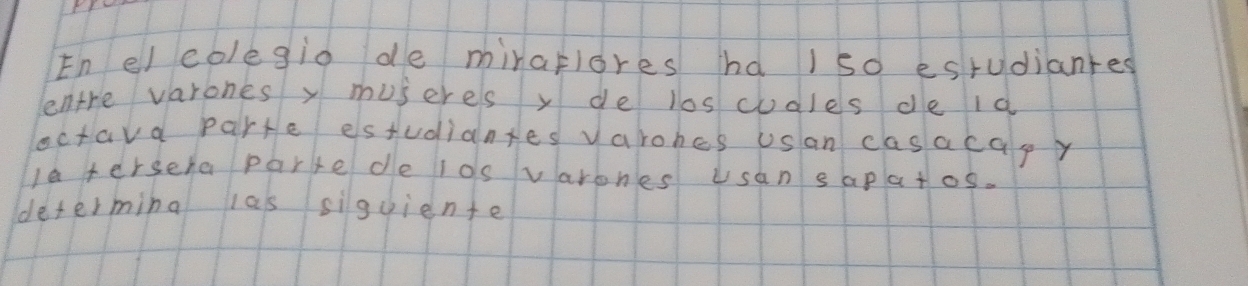 En el colegio de miraflores ha 150 estudiantes
entre varones y museres y de los cuales de la
octava parte estudiantes varones usan casacas y
la tersera parte de los varones usan sapatos.
determina las siguiente